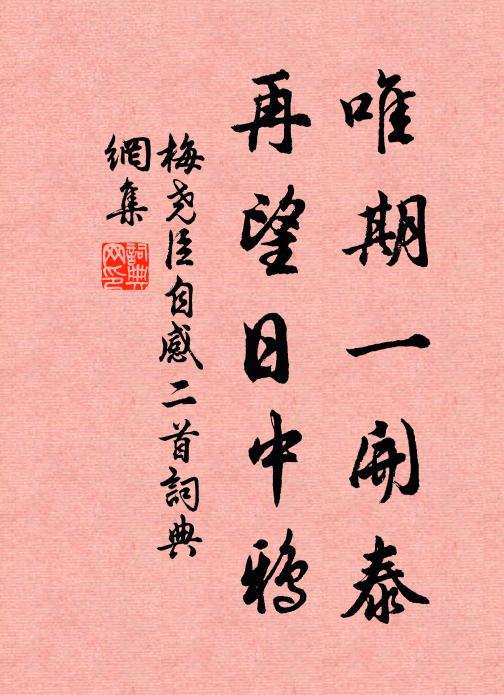 唯期一開泰
再望日中鴉
梅堯臣自感二首詞典
網集
詞典
网印